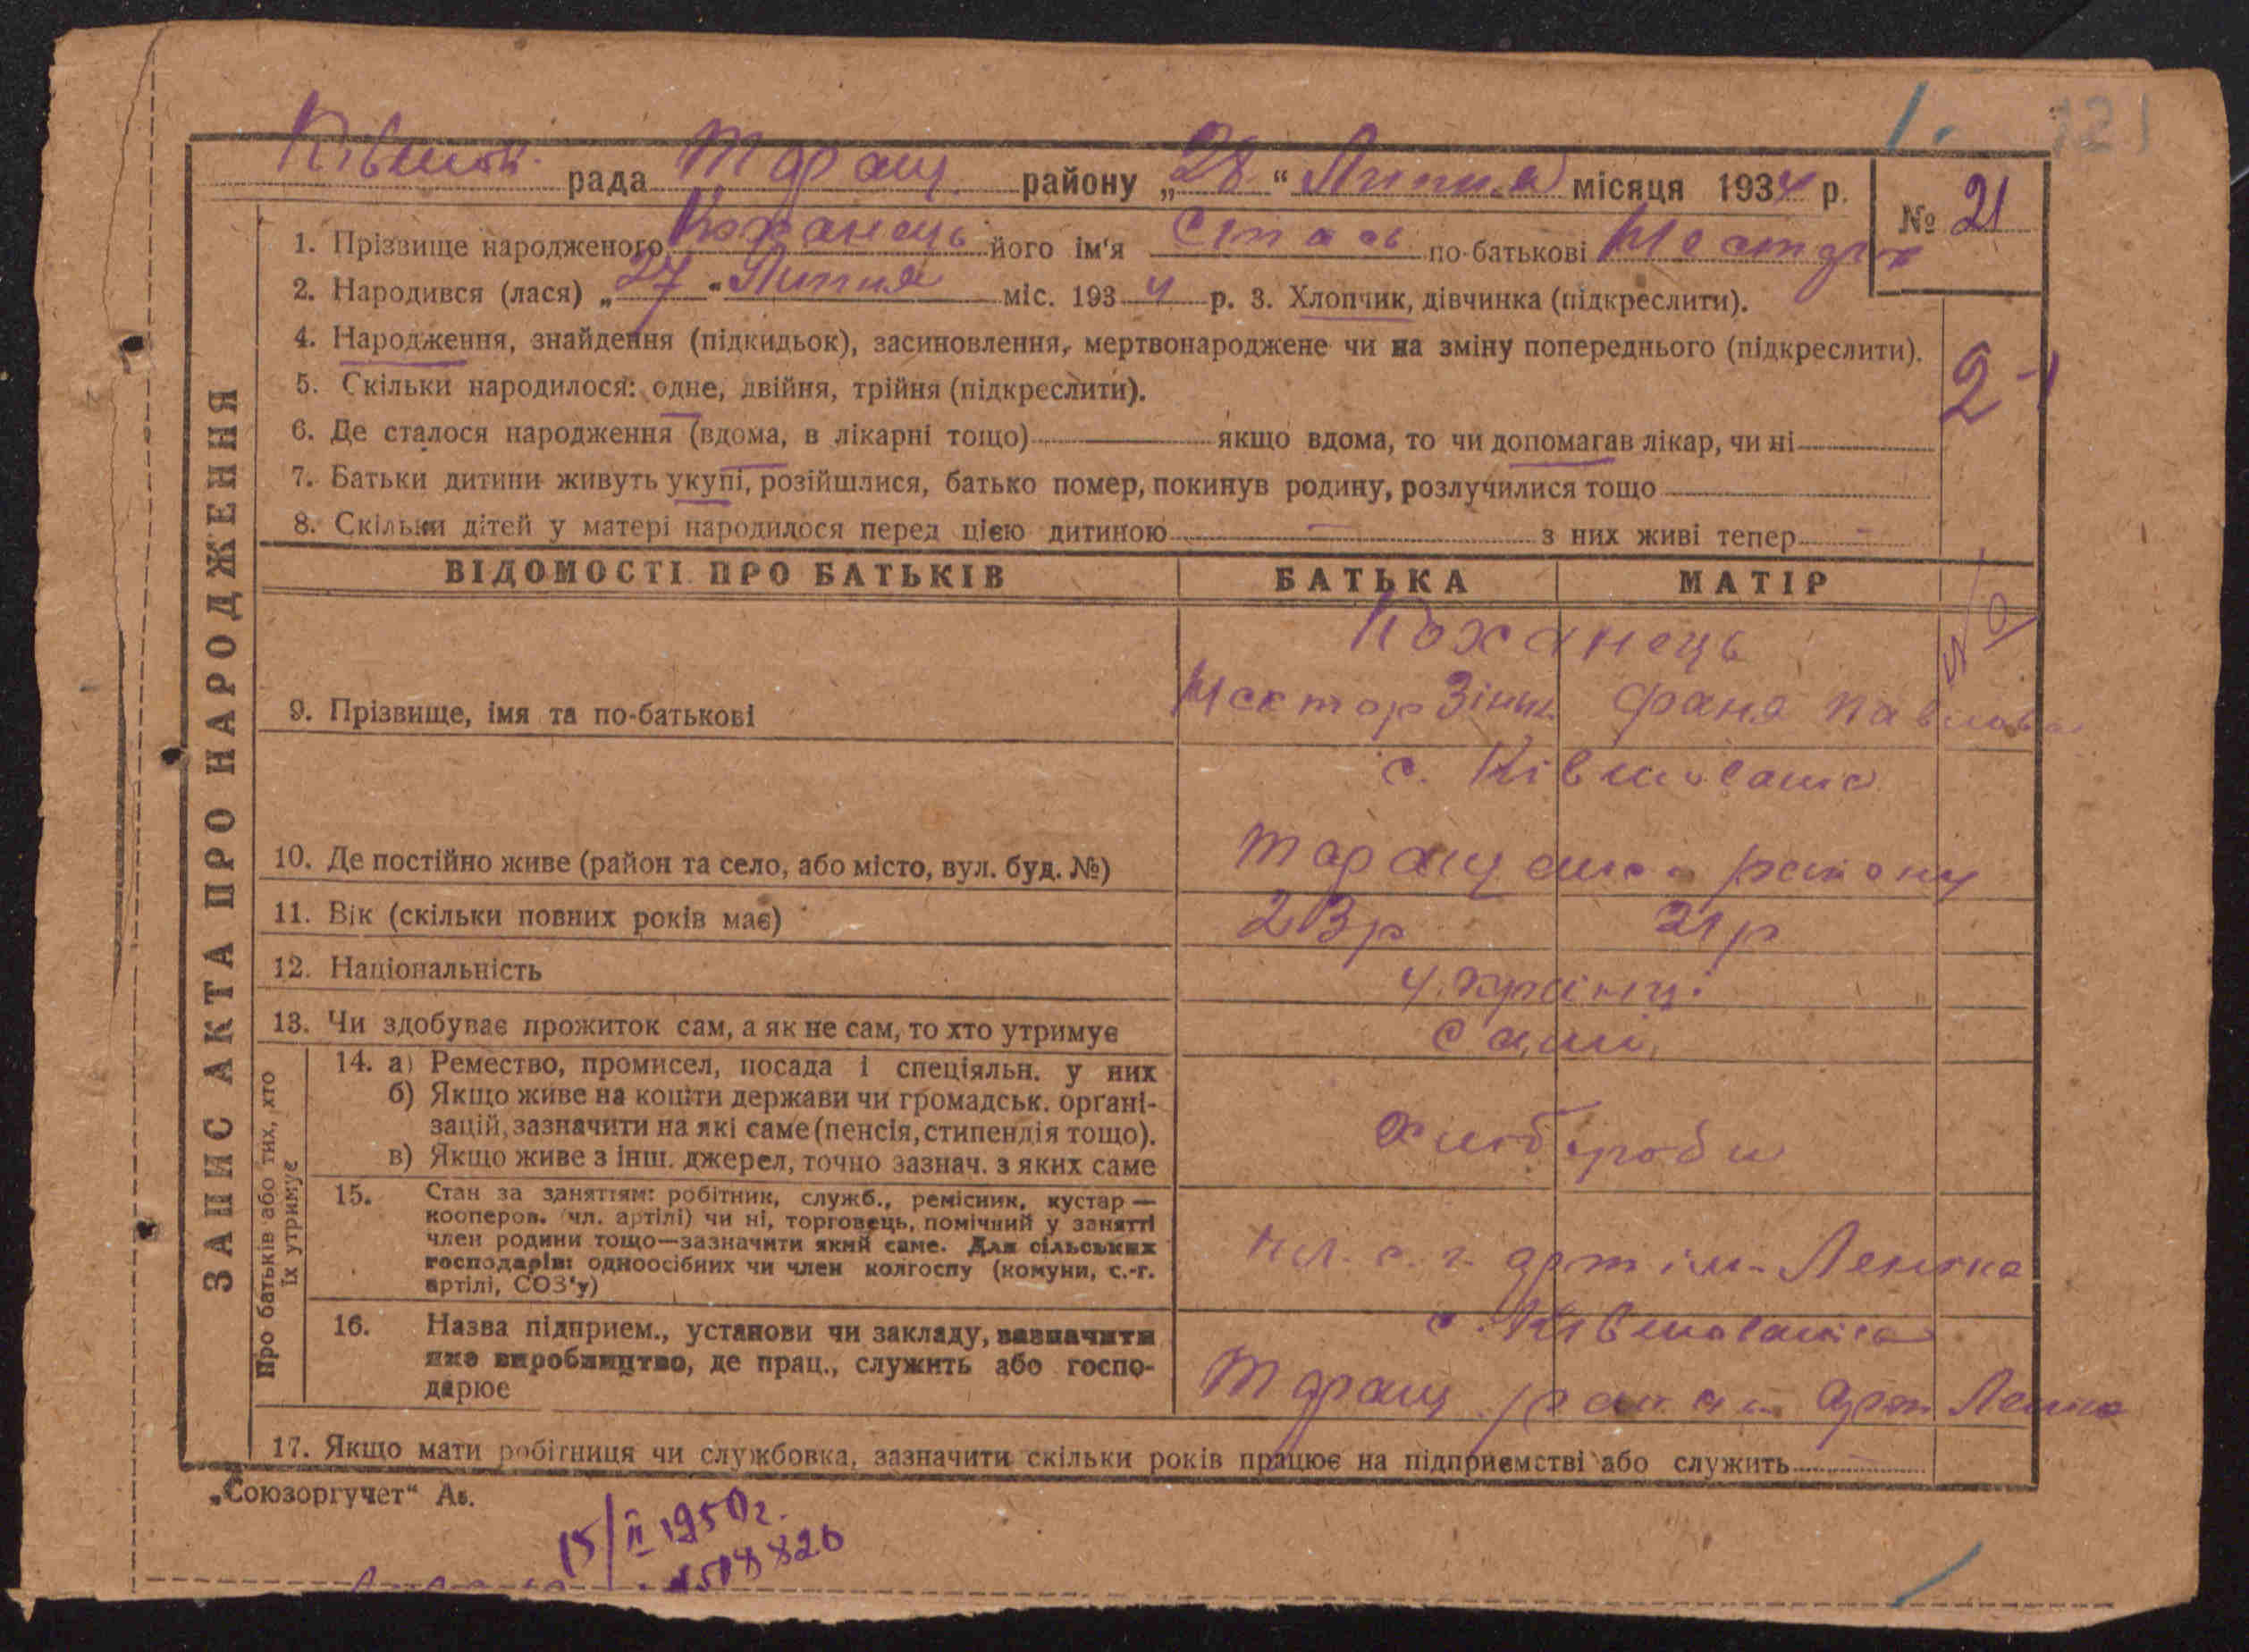 1. 121
Ківшов. рада Таращ. району „28“ Липня місяця 1934 р. № 21
1. Прізвище народженого Коханець його ім'я Стась по-батькові
2. Народився (лася) „27“ Липня міс. 1934 р. 3. Хлопчик, дівчинка (підкреслити).
4. Народження, знайдення (підкидьок), засиновлення, мертвонароджене чи на зміну попереднього (підкреслити).
2-1
5. Скільки народилося: одне, двійня, трійня (підкреслити).
6. Де сталося народження (вдома, в лікарні тощо) якщо вдома, то чи допомагав лікар, чи ні
7. Батьки дитини живуть укупі, розійшлися, батько помер, покинув родину, розлучилися тощо
8. Скільки дітей у матері народилося перед цією дитиною — з них живі тепер —
ЗАПИС АКТА ПРО НАРОДЖЕННЯ
ВІДОМОСТІ ПРО БАТЬКІВ БАТЬКА МАТІР
Коханець
9. Прізвище, імя та по-батькові Фаня Павлова
с. Ківшовата
10. Де постійно живе (район та село, або місто, вул. буд. №) Таращанськ. району
11. Вік (скільки повних років має) 23р 21р
12. Національність Українці
13. Чи здобуває прожиток сам, а як не сам, то хто утримує самі
Про батьків або тих, хто
їх утримує
14. а) Ремество, промисел, посада і спеціяльн. у них
б) Якщо живе на кошти держави чи громадськ. орґані-
зацій, зазначити на які саме (пенсія, стипендія тощо).
в) Якщо живе з інш. джерел, точно зазнач. з яких саме
хлібороби
15. Стан за заняттям: робітник, служб., ремісник, кустар —
кооперов. (чл. артілі) чи ні, торговець, помічний у занятті
член родини тощо—зазначити який саме. Для сільських
господарів: одноосібних чи член колгоспу (комуни, с.-г.
артілі, СОЗ'у)
чл. с. г. арт ім. Леніна
16. Назва підприєм., установи чи закладу, зазначити
яке виробництво, де прац., служить або госпо-
дарює
с. Ківшовата
Таращ. району арт Леніна
17. Якщо мати робітниця чи службовка, зазначити скільки років працює на підприємстві або служить
„Союзоргучет“ Ав.
15/II 1950г.